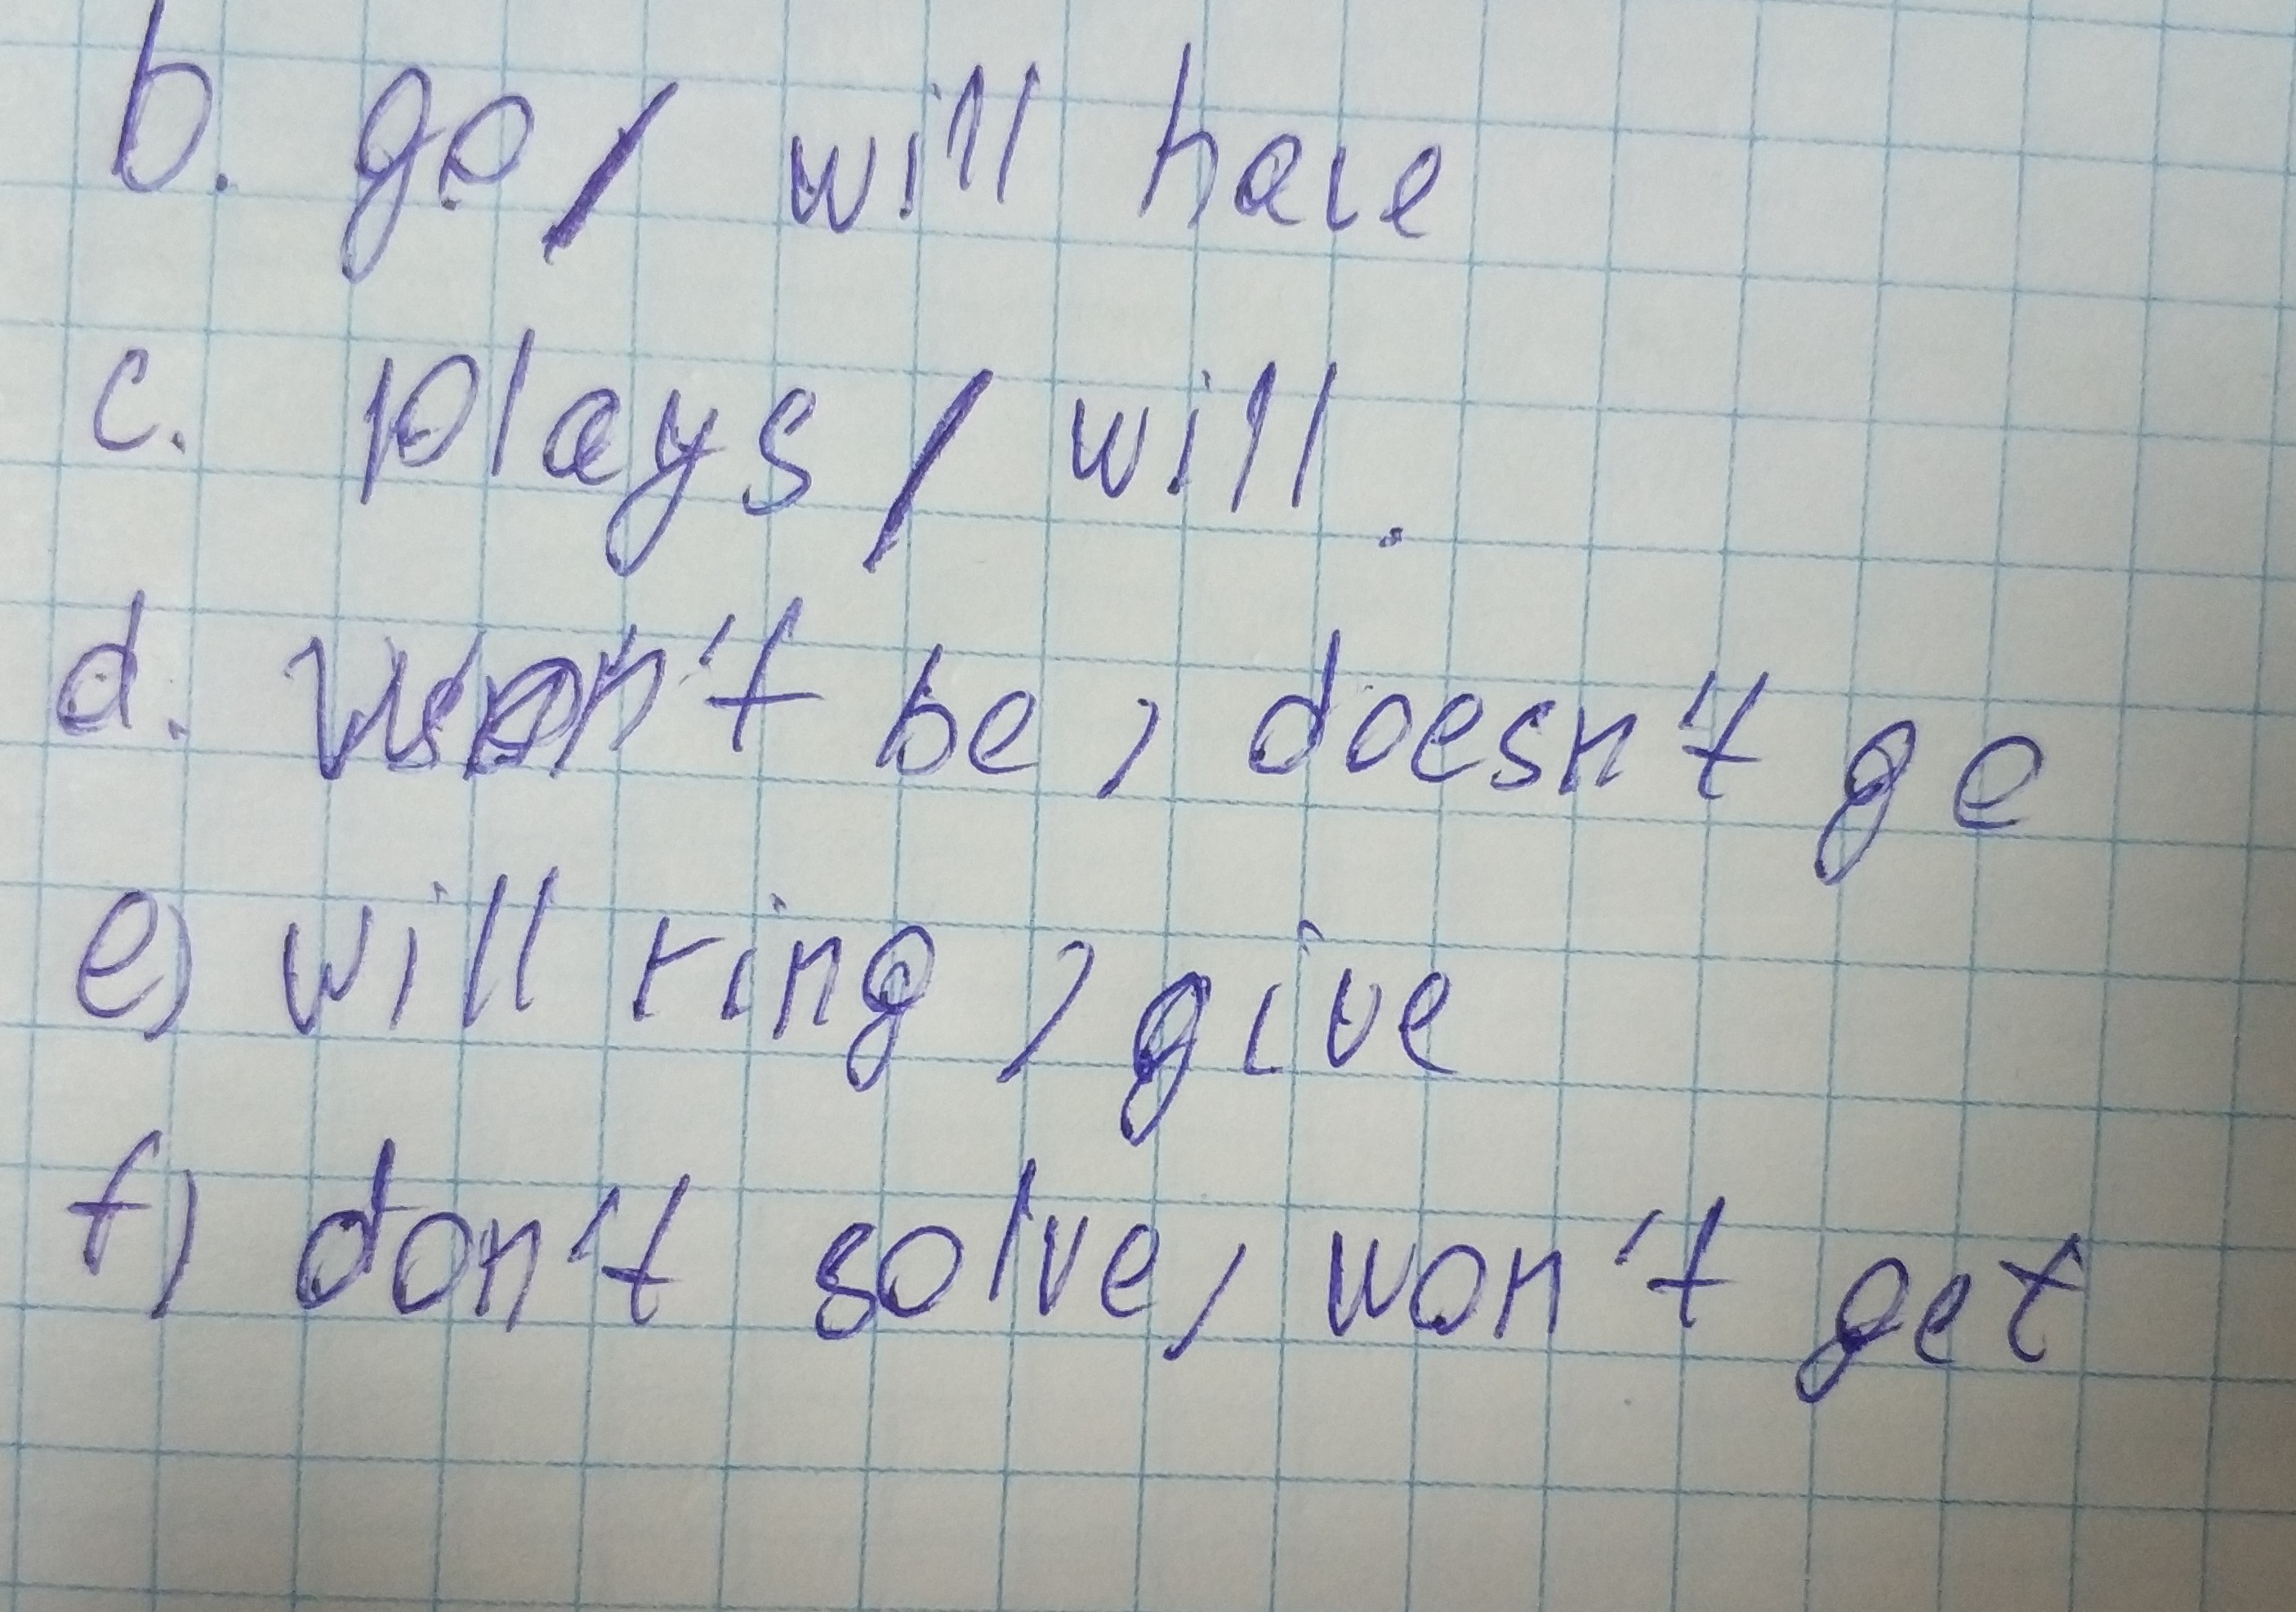 b. go / will have
c. plays / will.
d. won't be, doesn't go
e) will ring, give
f) don't solve, won't get